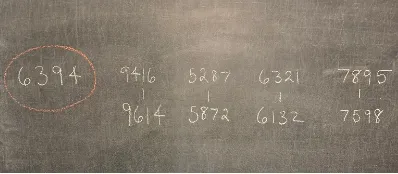 6394 9416 5287 6321 7895
| | | |
9614 5872 6132 7598